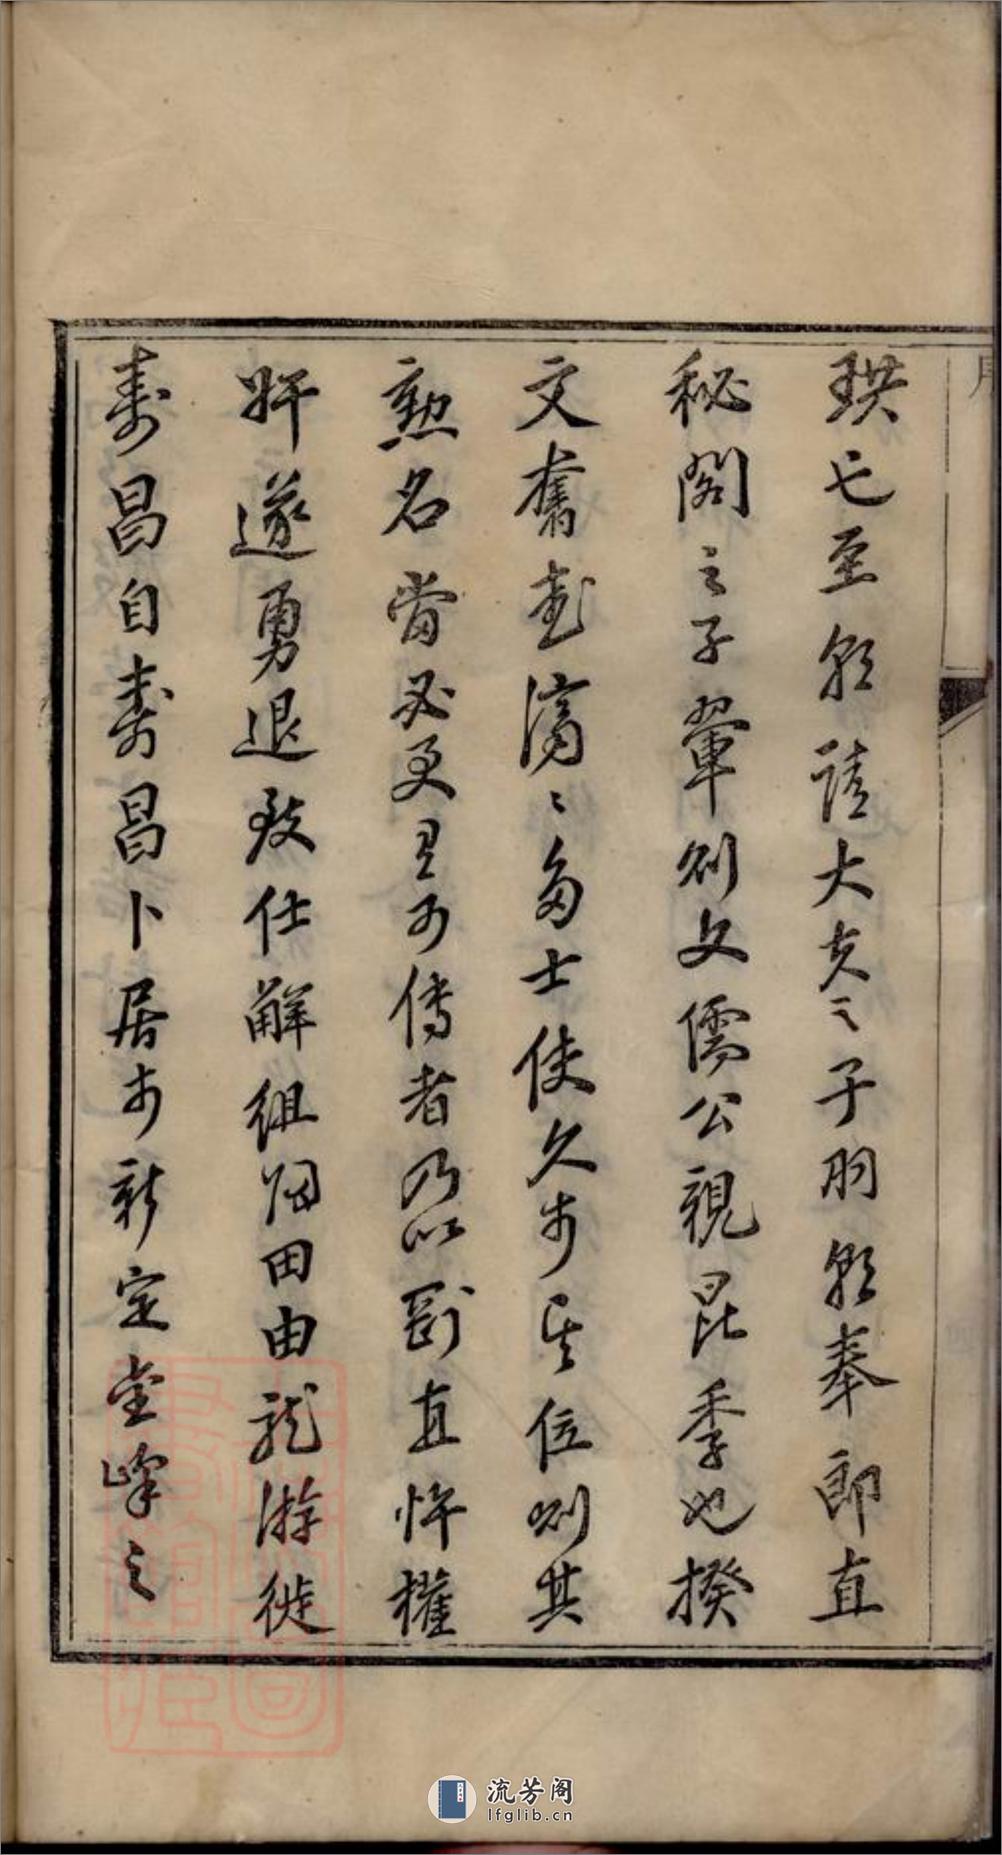 珙也至朝請大夫之子羽朝奉郎直
秘閣之子翬則文儒公親昆季也揆
文奮武濟〻多士使久於其位則其
勲名當必更有可傳者乃以剛直忤權
奸遂勇退致仕解組歸田由龍游徙
壽昌自壽昌卜居於新定堂峰之
流芳阁
lfglib.cn